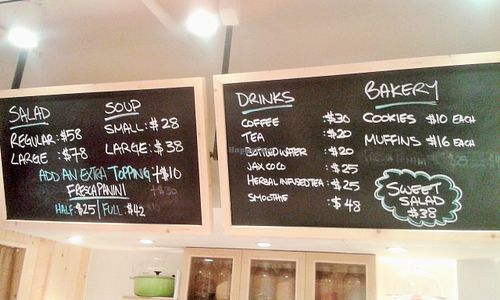 SALAD
REGULAR: $58
LARGE : $78
SOUP
SMALL: $28
LARGE: $38
ADD AN EXTRA TOPPING +$10
FRESCA PANINI
HALF: $25 | FULL: $42
DRINKS
COFFEE : $30
TEA : $20
BOTTLED WATER : $20
JAX COCO : $25
HERBAL INFUSED TEA : $25
SMOOTHIE : $48
BAKERY
COOKIES $10 EACH
MUFFINS $16 EACH
SWEET
SALAD
$38